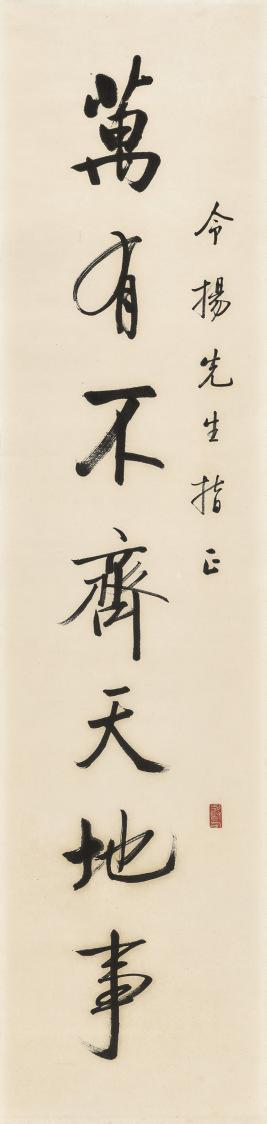 令揚先生指正
萬有不齊天地事